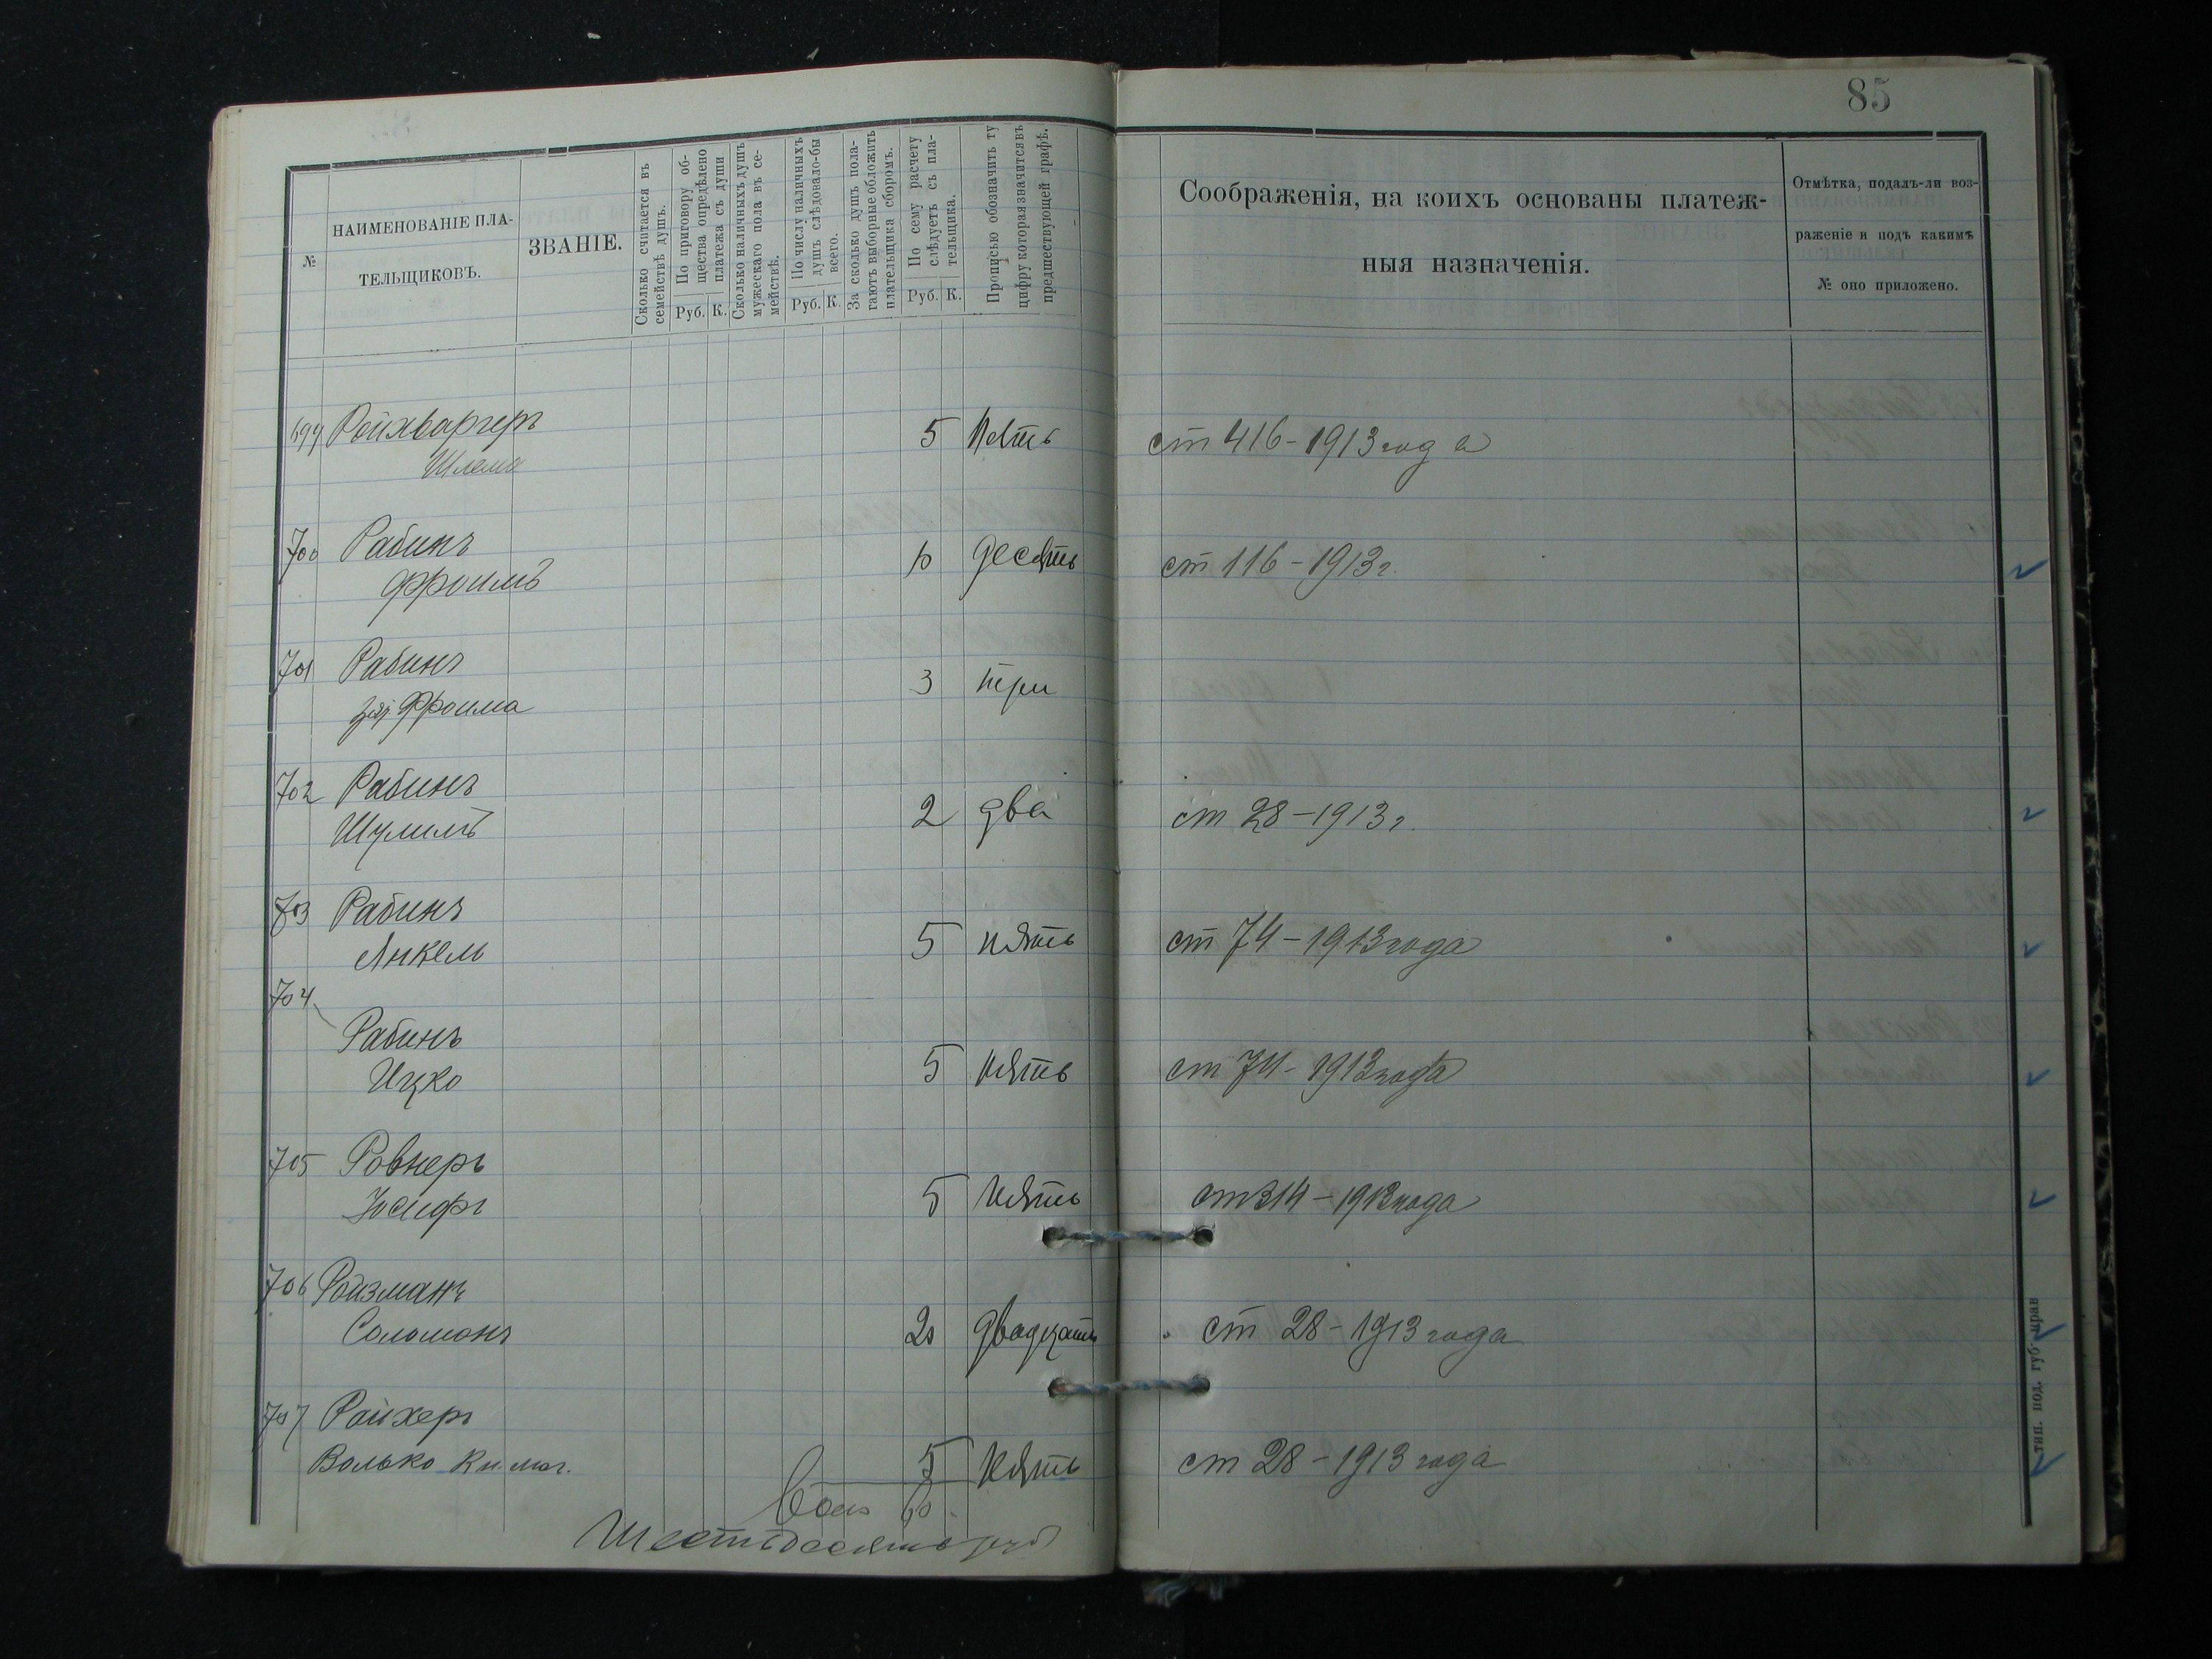 85
№
НАИМЕНОВАНІЕ ПЛА-
ТЕЛЬЩИКОВЪ.
ЗВАНІЕ.
Сколько считается въ
семействѣ душъ.
По приговору об-
щества опредѣлено
платежа съ души
Руб. К.
Сколько наличныхъ душъ
мужескаго пола въ се-
мействѣ.
По числу наличныхъ
душъ слѣдовало-бы
всего.
Руб. К.
За сколько душъ пола-
гаютъ выборные обложить
плательщика сборомъ.
По сему расчету
слѣдуетъ съ пла-
тельщика.
Руб. К.
Прописью обозначить ту
цифру которая значится въ
предшествующей графѣ.
Соображенія, на коихъ основаны платеж-
ныя назначенія.
Отмѣтка, подалъ-ли воз-
раженіе и подъ какимъ
№ оно приложено.
699 Ройхваргеръ 5 Пять ст 416 - 1913 года
Шлема
700 Рабинъ 10 Десять ст 116 - 1913 г.
Фроимъ
701 Рабинъ 3 три
Фроима
702 Рабинъ 2 два ст 28 - 1913 г.
Шулимъ
703 Рабинъ 5 пять ст 74 - 1913 года
Янкель
704
Рабинъ 5 пять ст 74 - 1913 года
Ицко
705 Ровнеръ 5 Пять ст 314 - 1913 года
Іосифъ
706 Ройзманъ
Соломонъ 20 двадцать ст 28 - 1913 года
707 Райхеръ
Волько Кн. маг. 5 Пять ст 28 - 1913 года
60
Шестьдесять руб
тип. под. губ. прав